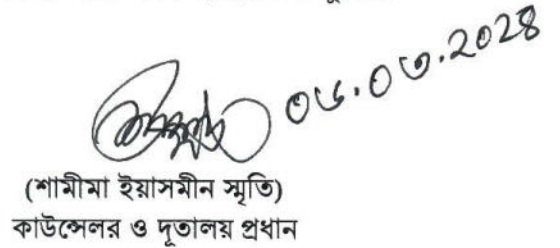 ০৬.০৩.২০২৪
(শামীমা ইয়াসমীন স্মৃতি)
কাউন্সেলর ও দূতালয় প্রধান